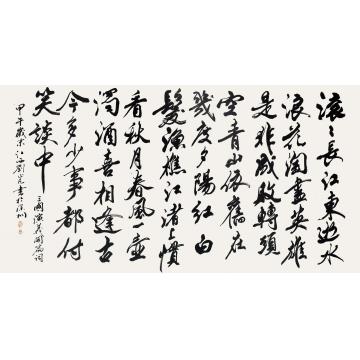 滚々长江东逝水
浪花淘尽英雄
是非成败转头
空青山依旧在
几度夕阳红白
发渔樵江渚上惯
看秋月春风一壶
浊酒喜相逢古
今多少事都付
笑谈中
三国演义开篇词
甲午岁末江子刘光书於深圳